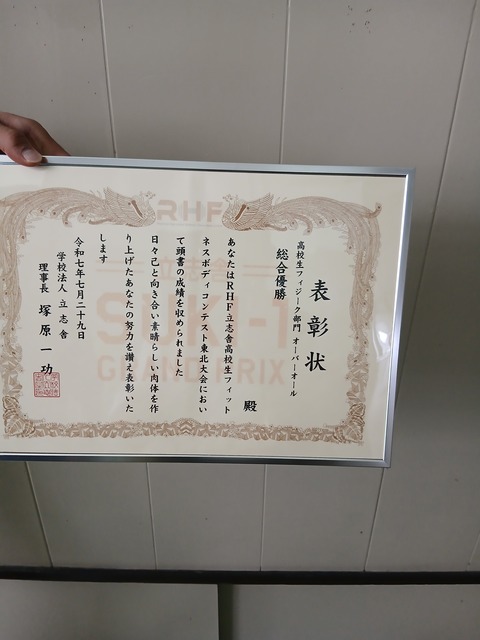 表彰状
高校生フィジーク部門 オーバーオール
総合優勝
殿
あなたはRHF立志舎高校生フィット
ネスボディコンテスト東北大会におい
て頭書の成績を収められました
日々己と向き合い素晴らしい肉体を作
り上げたあなたの努力を讃え表彰いた
します
令和七年七月二十九日
学校法人 立志舎
理事長 塚原一功
RHF
GRAND PRIX